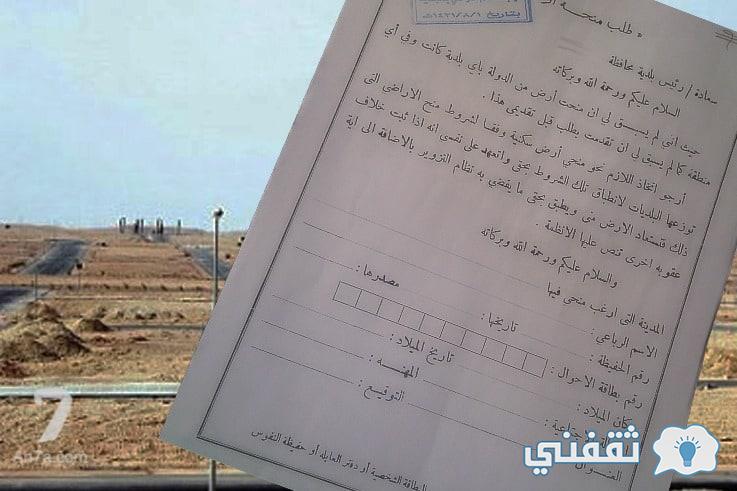 بتاريخ ١٤٣١/٨/١هـ
* طلب منحة
سعادة / رئيس بلدية محافظة
السلام عليكم ورحمة الله وبركاته
حيث اني لم يسبق لي ان منحت أرض من الدولة بأي بلدية كانت وفي أي
منطقة كما لم يسبق لي ان تقدمت بطلب قبل تقديمي هذا .
أرجو اتخاذ اللازم نحو منحي أرض سكنية وفقا لشروط منح الاراضي التي
توزعها البلديات لانطباق تلك الشروط بحقي واتعهد على نفسي انه اذا ثبت خلاف
ذلك فتستعاد الارض مني ويطبق بحقي ما يقضي به نظام التزوير بالاضافة الى اية
عقوبه اخرى تنص عليها الانظمة .
والسلام عليكم ورحمة الله وبركاته
المدينة التي ارغب منحي فيها
الاسم الرباعي :
رقم الحفيظة : تاريخها : مصدرها :
رقم بطاقة الاحوال :
مكان الميلاد : تاريخ الميلاد :
المهنه :
العنوان التوقيع :
البطاقة الشخصية أو دفتر العايله أو حفيظة النفوس
7
An7a.com
ثقفني